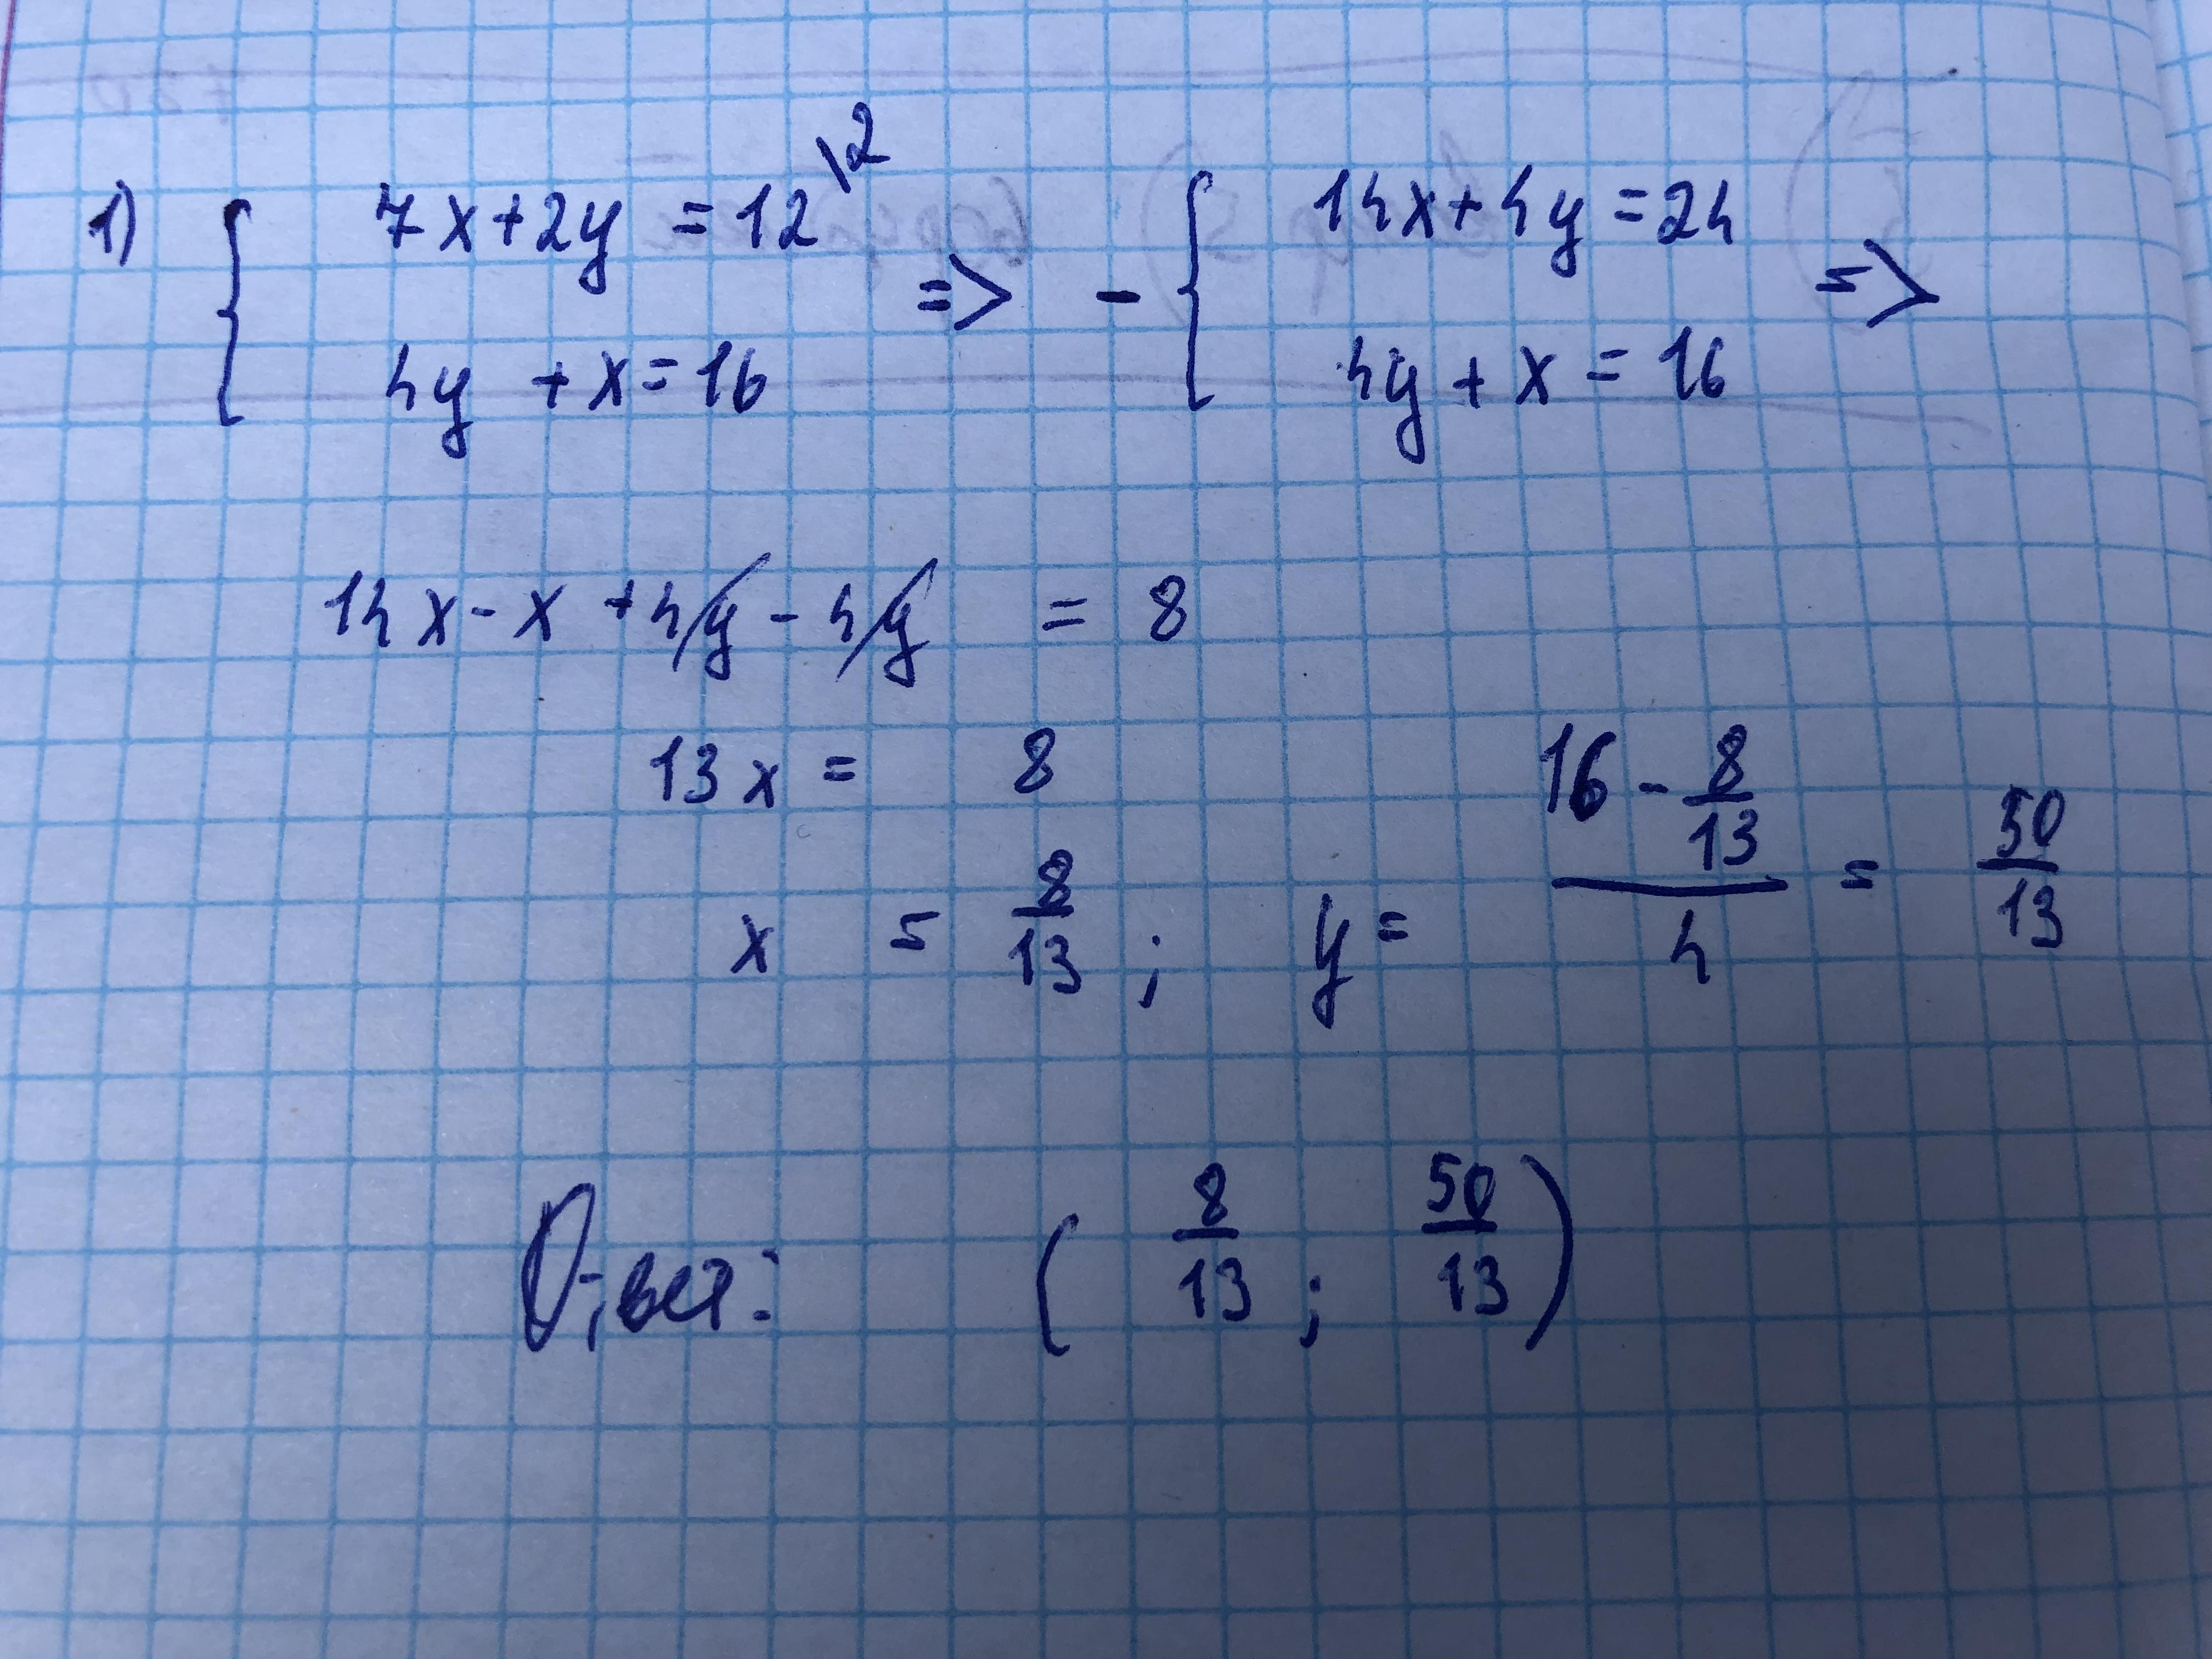 1) { 7x+2y = 12 \2 => - { 14x+4y = 24 =>
4y + x = 16 4y + x = 16
14x - x + 4y - 4y = 8
13x = 8
x = 8/13 ; y = (16 - 8/13)/4 = 50/13
Ответ: ( 8/13 ; 50/13 )